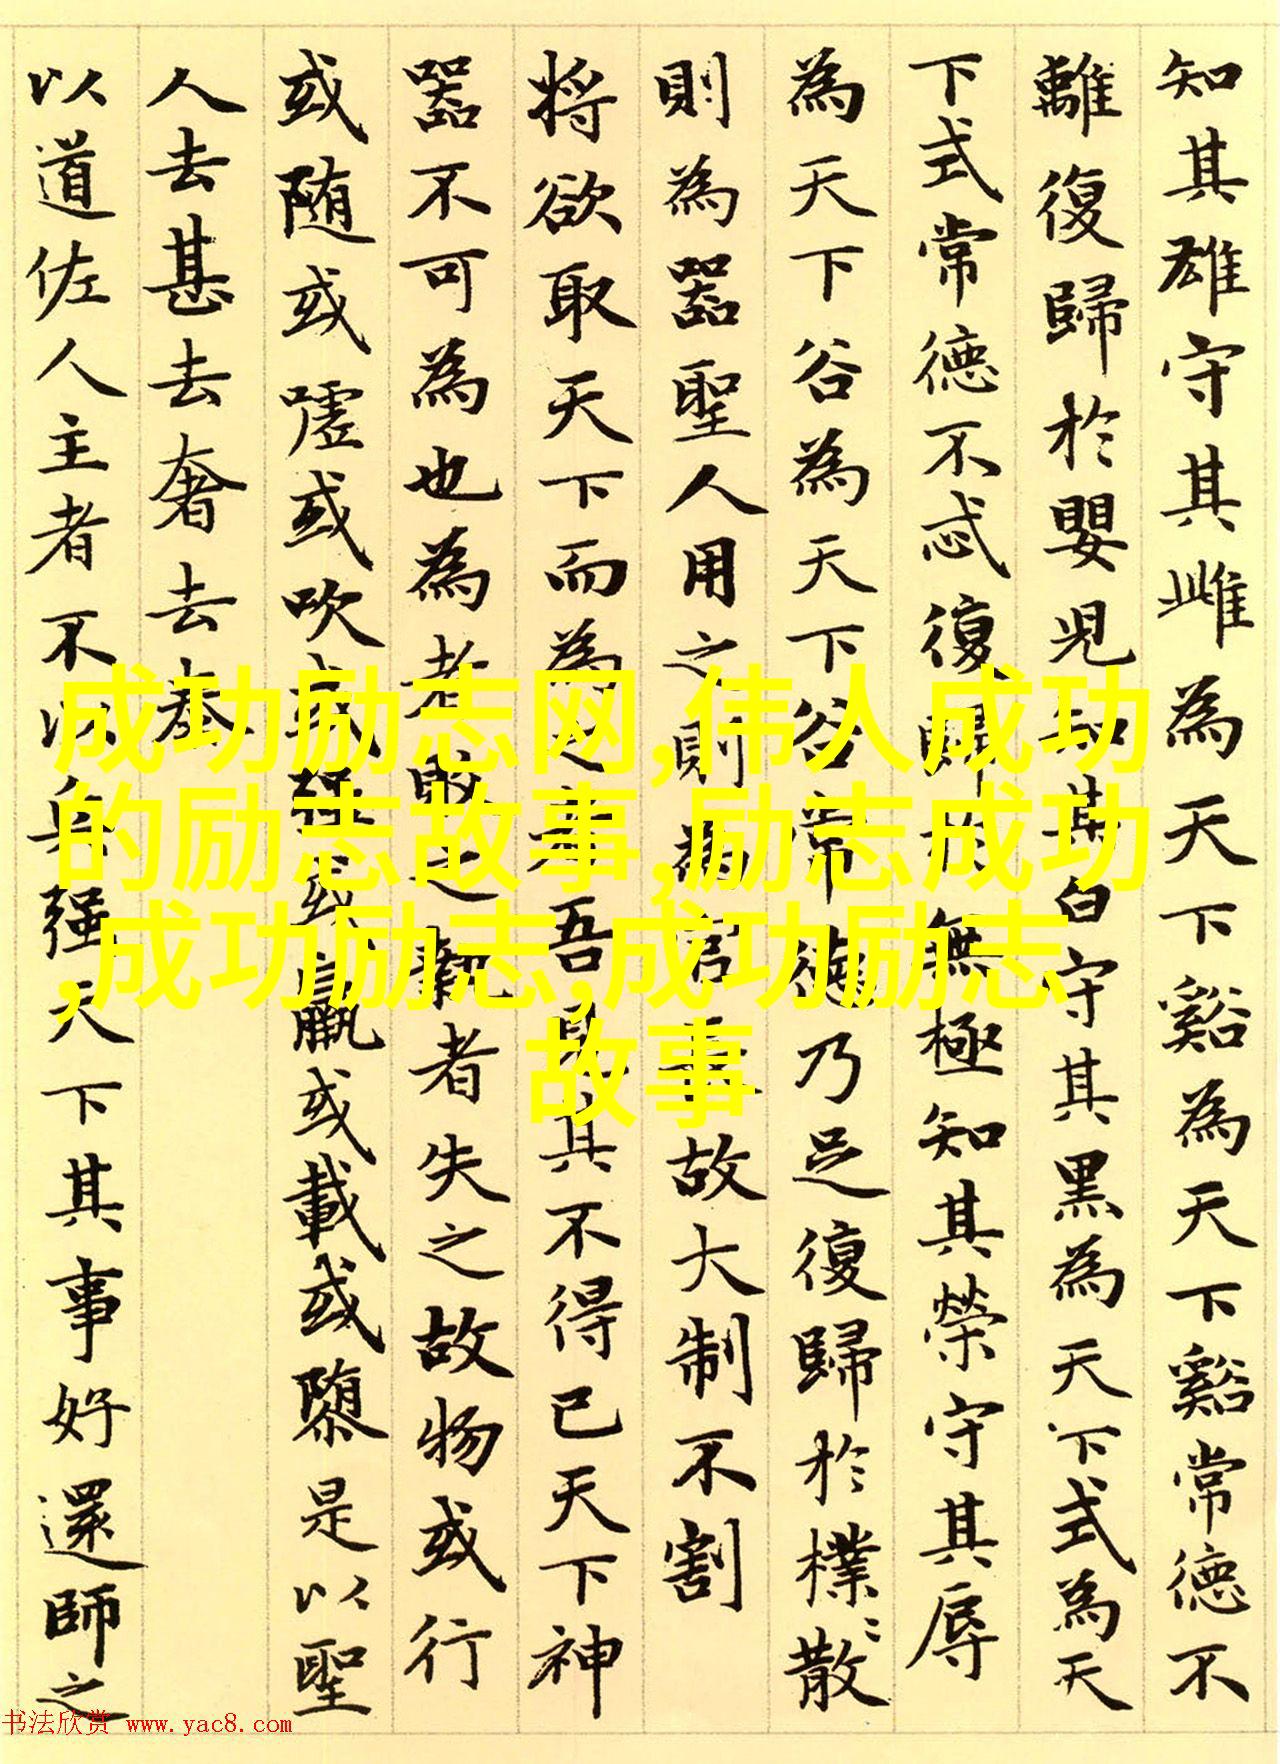 知其雄守其雌為天下谿為天下谿常德不
離復歸於嬰兒知其白守其黑為天下式為天
下式常德不忒復歸於無極知其榮守其辱
為天下谷為天下谷常德乃足復歸於樸〻散
則為器聖人用之則為官長故大制不割
将欲取天下而為之者吾見其不得已天下神
器不可為也為者敗之執者失之故物或行
或随或嘘或吹或强或羸或載或隳是以聖
人去甚去奢去泰
以道佐人主者不以兵强天下其事好還師之
成功励志网,伟人成功
的励志故事,励志成功
,成功励志,成功励志
故事
书法欣赏 www.yac8.com